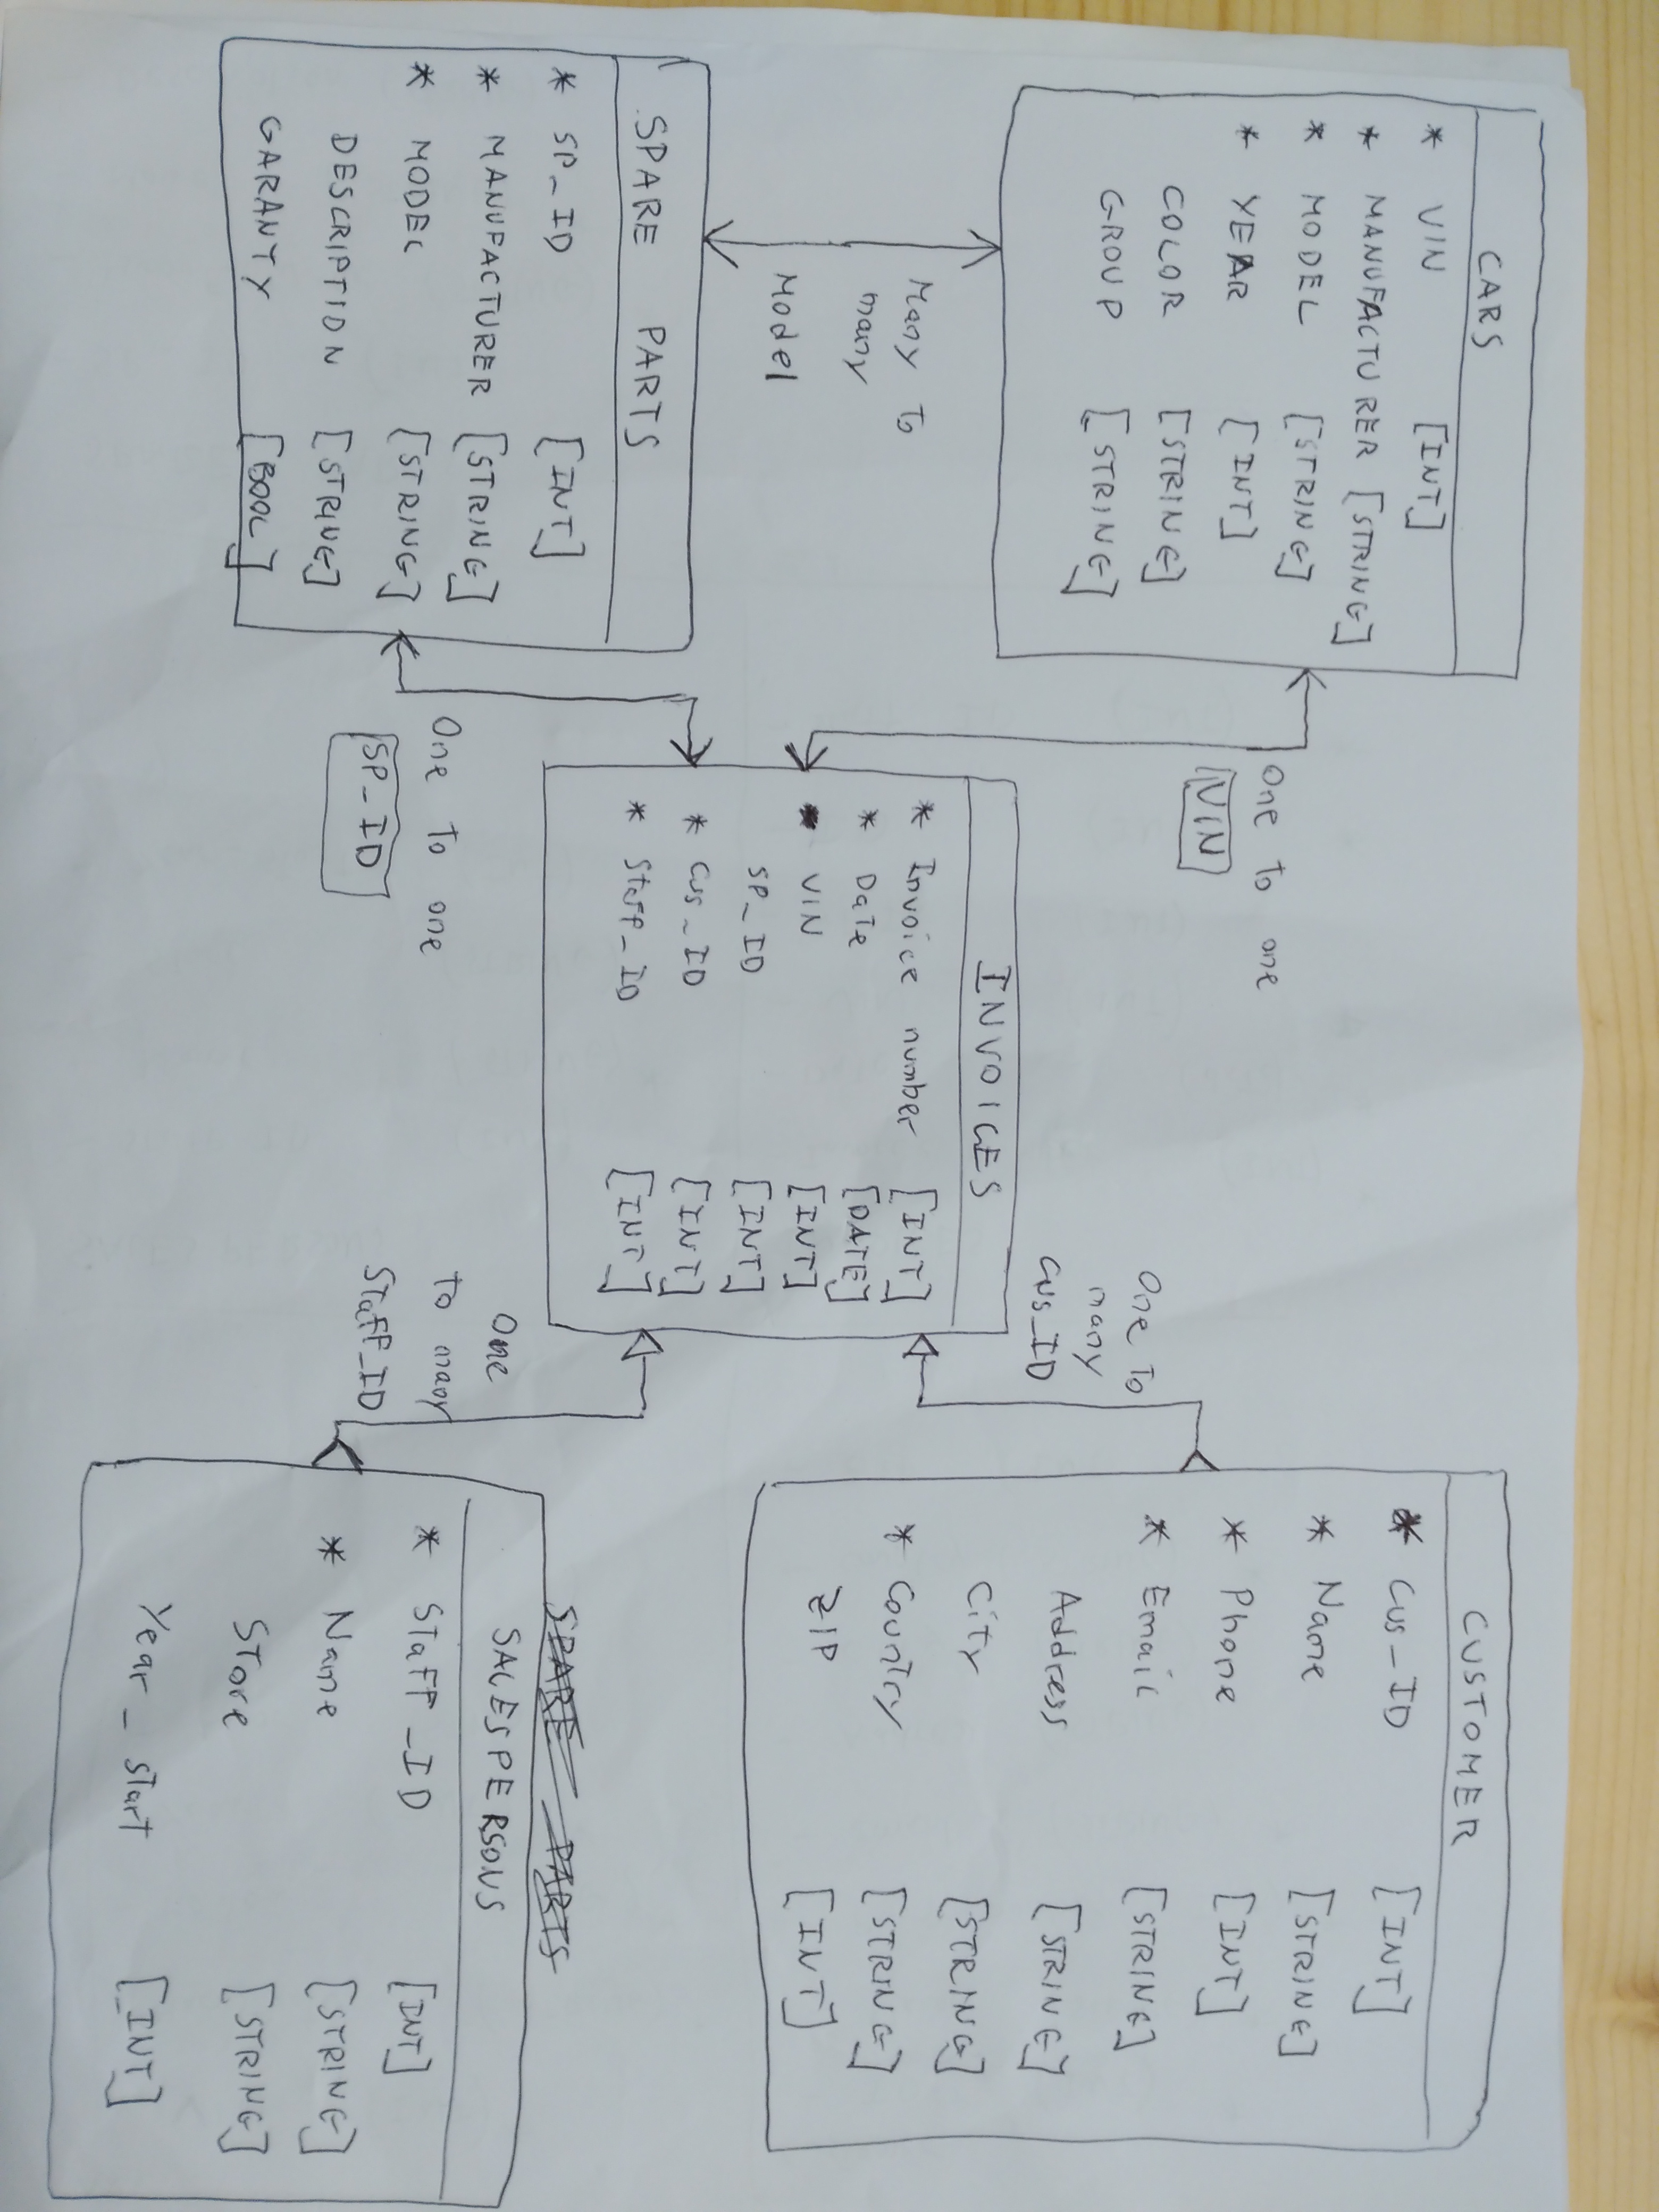 CARS
* VIN [INT]
* MANUFACTURER [STRING]
* MODEL [STRING]
* YEAR [INT]
COLOR [STRING]
GROUP [STRING]
One To one
VIN
Many To
many
Model
SPARE PARTS
* SP_ID [INT]
* MANUFACTURER [STRING]
* MODEL [STRING]
DESCRIPTION [STRING]
GARANTY [BOOL]
One To one
SP_ID
INVOICES
* Invoice number [INT]
* Date [DATE]
* VIN [INT]
SP_ID [INT]
* Cus_ID [INT]
* Staff_ID [INT]
One To
many
Cus_ID
One
To many
Staff_ID
CUSTOMER
* Cus_ID [INT]
* Name [STRING]
* Phone [INT]
* Email [STRING]
Address [STRING]
City [STRING]
* Country [STRING]
ZIP [INT]
SPARE PARTS
SALESPERSONS
* Staff_ID [INT]
* Name [STRING]
Store [STRING]
Year_start [INT]